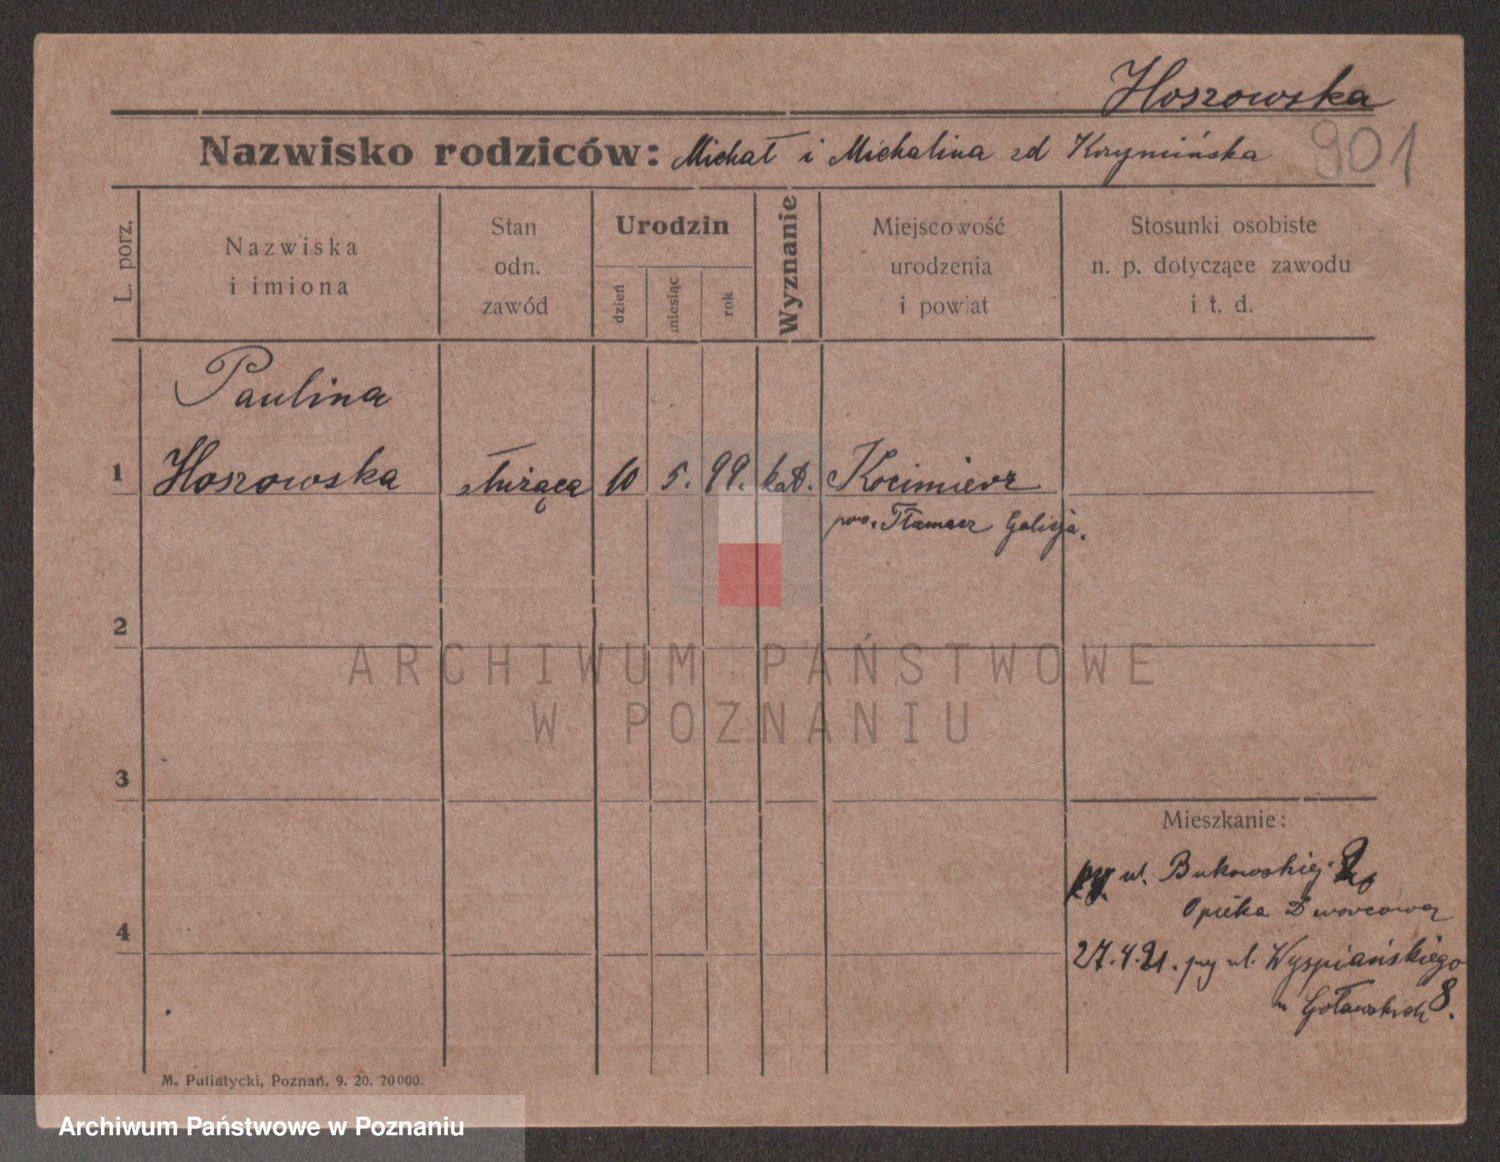 Hoszowska
901
Nazwisko rodziców: Michał i Michalina zd Krymińska
L. porz.
Nazwiska
i imiona
Stan
odn.
zawód
Urodzin
dzień
miesiąc
rok
Wyznanie
Miejscowość
urodzenia
i powiat
Stosunki osobiste
n. p. dotyczące zawodu
i t. d.
Paulina
1 Hoszowska służąca 10 5. 99. kat. Kocimierz
pow. Tłumacz Galicja.
2
ARCHIWUM PAŃSTWOWE
W POZNANIU
3
Mieszkanie:
ul. Bukowskiej
4 Opieka Dworcowa
27.4.21. przy ul. Wyspiańskiego
u Goławskich 8.
M. Putiatycki, Poznań. 9. 20. 20000.
Archiwum Państwowe w Poznaniu